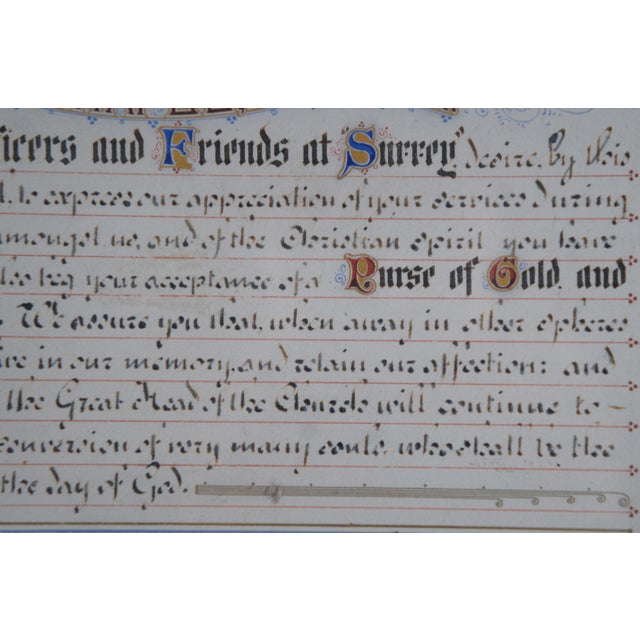 and Friends at "Surrey," desire, by this
to express our appreciation of your services during
amongst us, and of the Christian spirit you have
beg your acceptance of a Purse of Gold, and
We assure you that, when away in other spheres
in our memory, and retain our affection: and
the Great Head of the Church will continue to—
conversion of very many souls, who shall be the
the day of God.